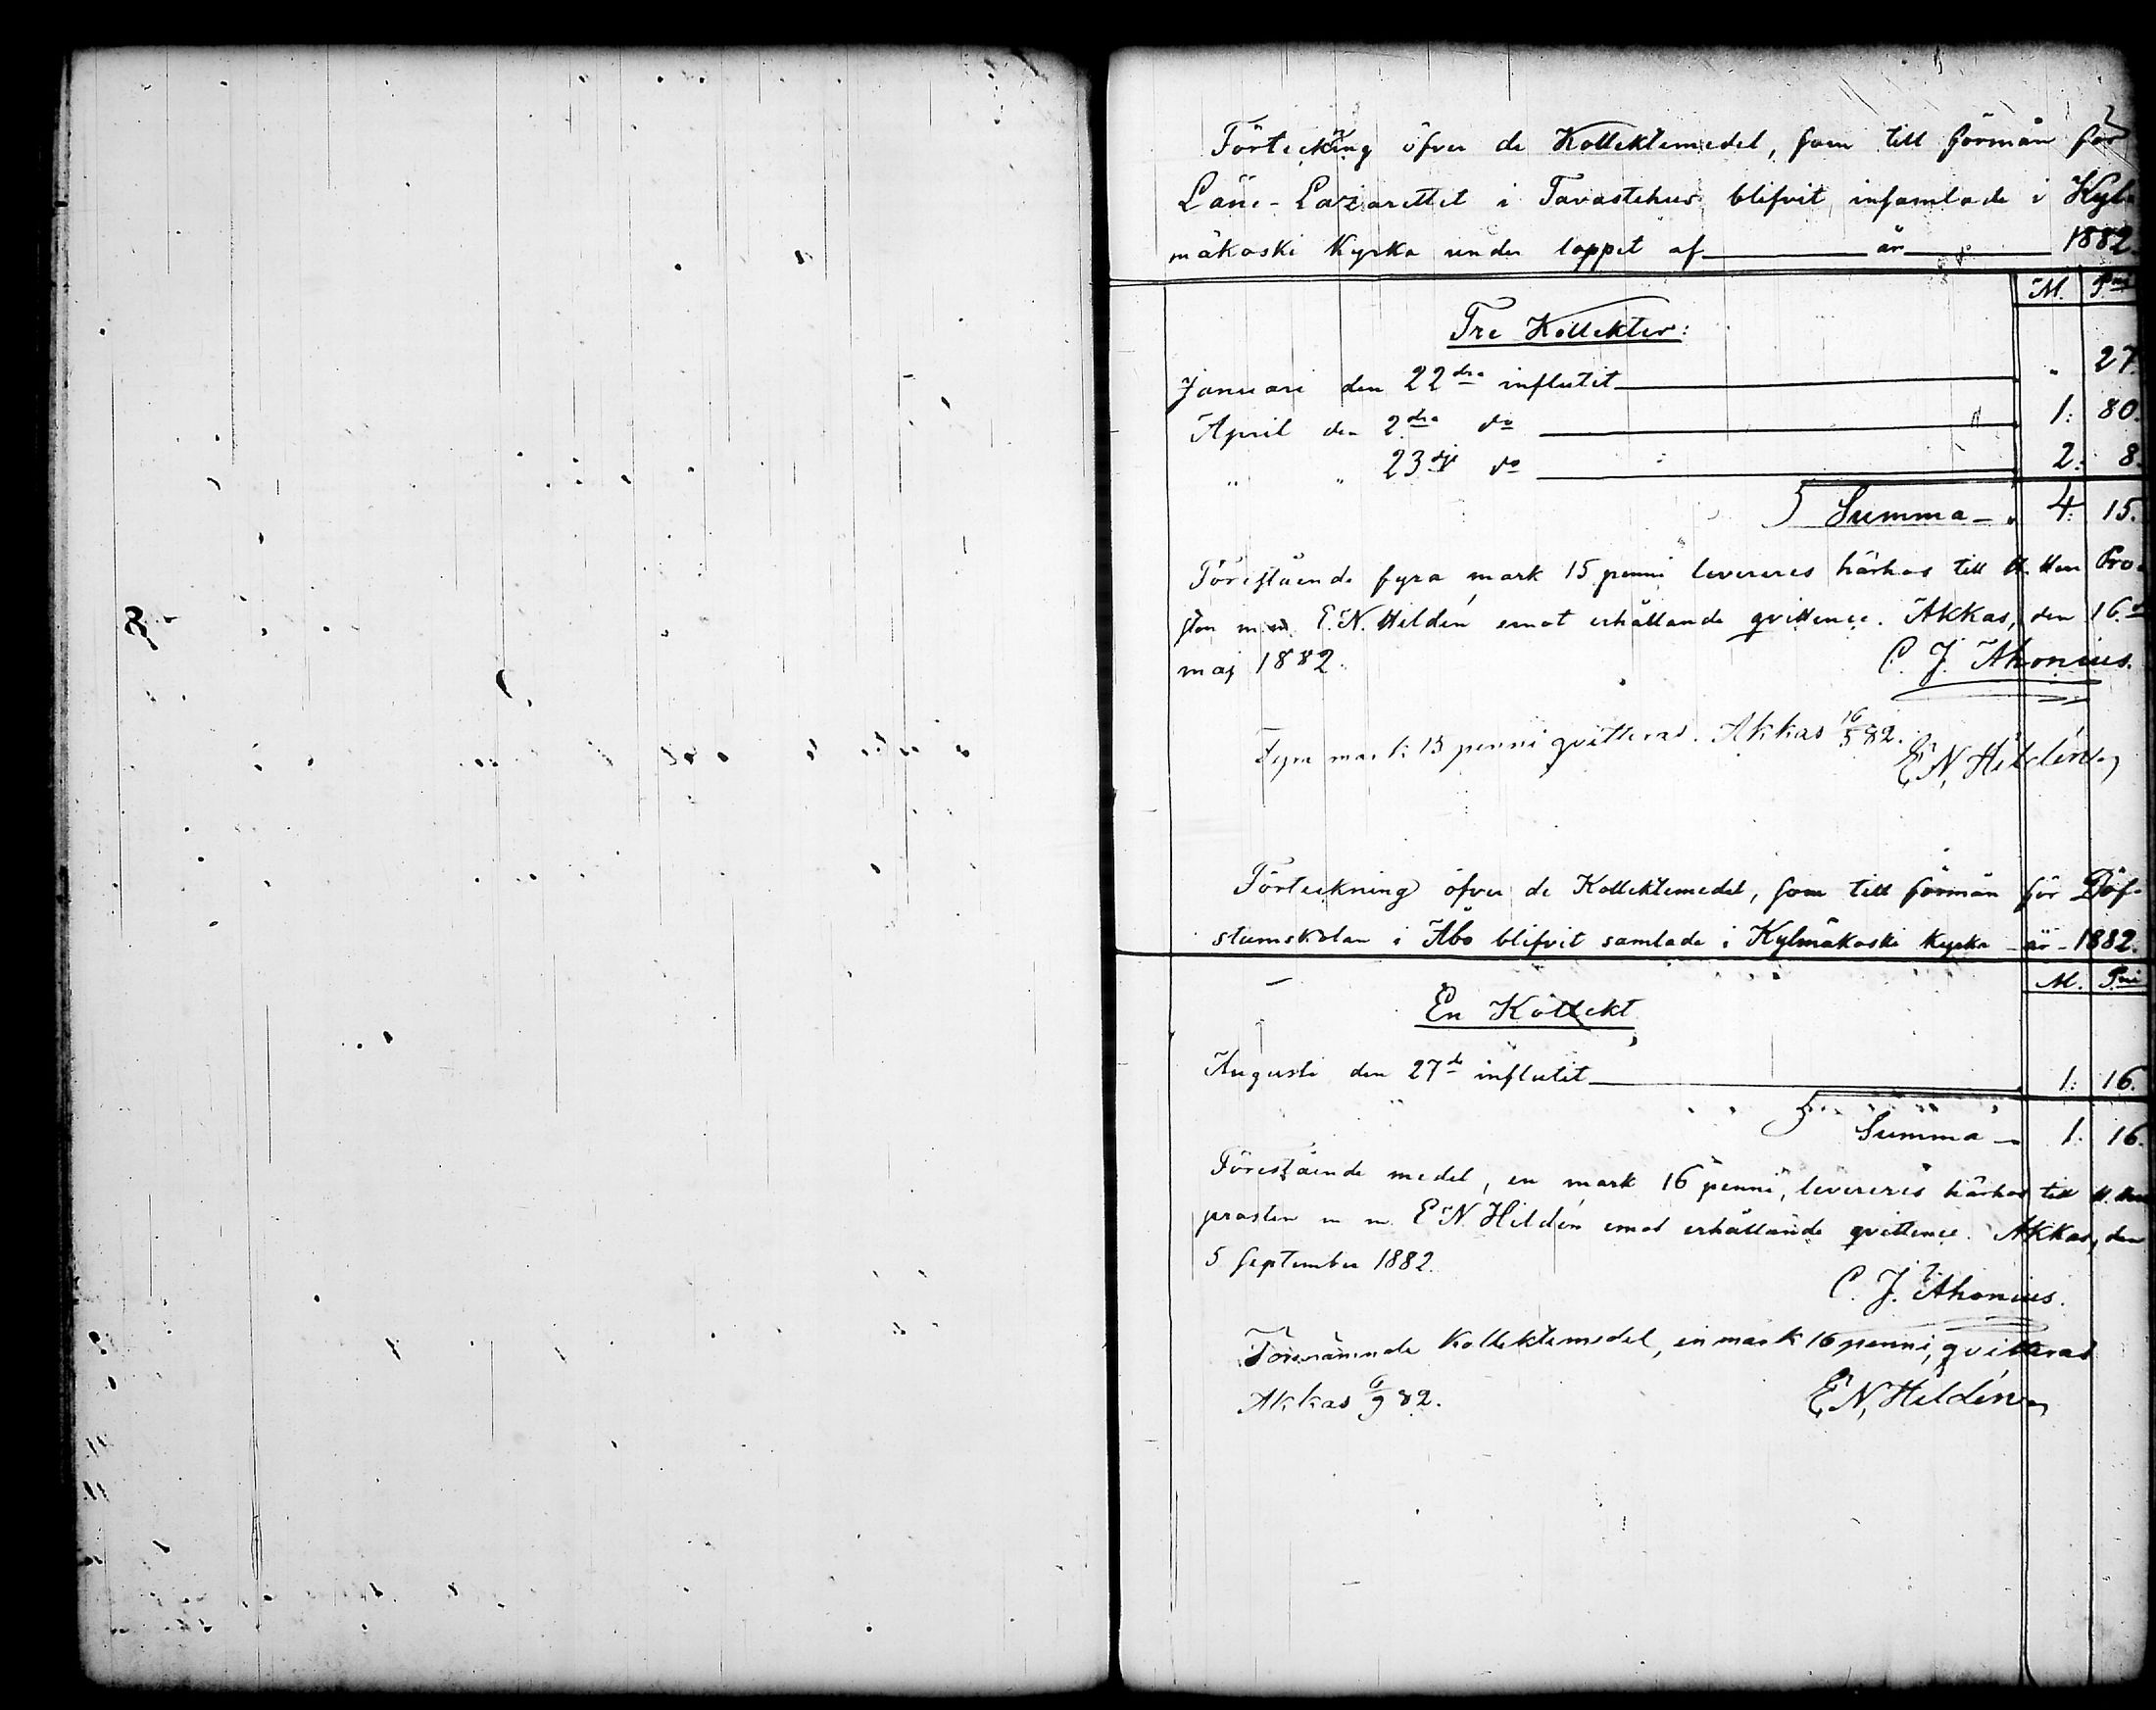 Förteckning öfver de Kollektemedel, som till förmån för
Läns-Lazarettet i Tavastehus blifvit insamlade i Kyl-
mäkoski Kyrka under loppet af år 1882.
M. P:ni
Tre Kollekter:
Januari den 22dra influtit „ 27.
April den 2dra do 1: 80.
„ „ 23dje do 2: 8.
Summa 4: 15.
Förestående fyra mark 15 penni levereres härhos till H. Herr Pro-
sten m. m. E. N. Hildén emot erhållande qvittence. Akkas, den 16de
maj 1882.
C. J. Ahonius.
Fyra mark 15 penni qvitteras. Akkas 16/5 82.
E. N. Hildén
Förteckning öfver de Kollektemedel, som till förmån för Döf-
stumskolan i Åbo blifvit samlade i Kylmäkoski Kyrka år 1882.
M. P:ni
En Kollekt
Augusti den 27de influtit 1: 16.
Summa 1: 16.
Förestående medel, en mark 16 penni, levereres härhos till H. Herr
prosten m. m. E. N. Hildén emot erhållande qvittence. Akkas, den
5 September 1882.
C. J. Ahonius.
Förenämnde Kollektemedel, en mark 16 penni, qvitteras
Akkas 6/9 82.
E. N. Hildén